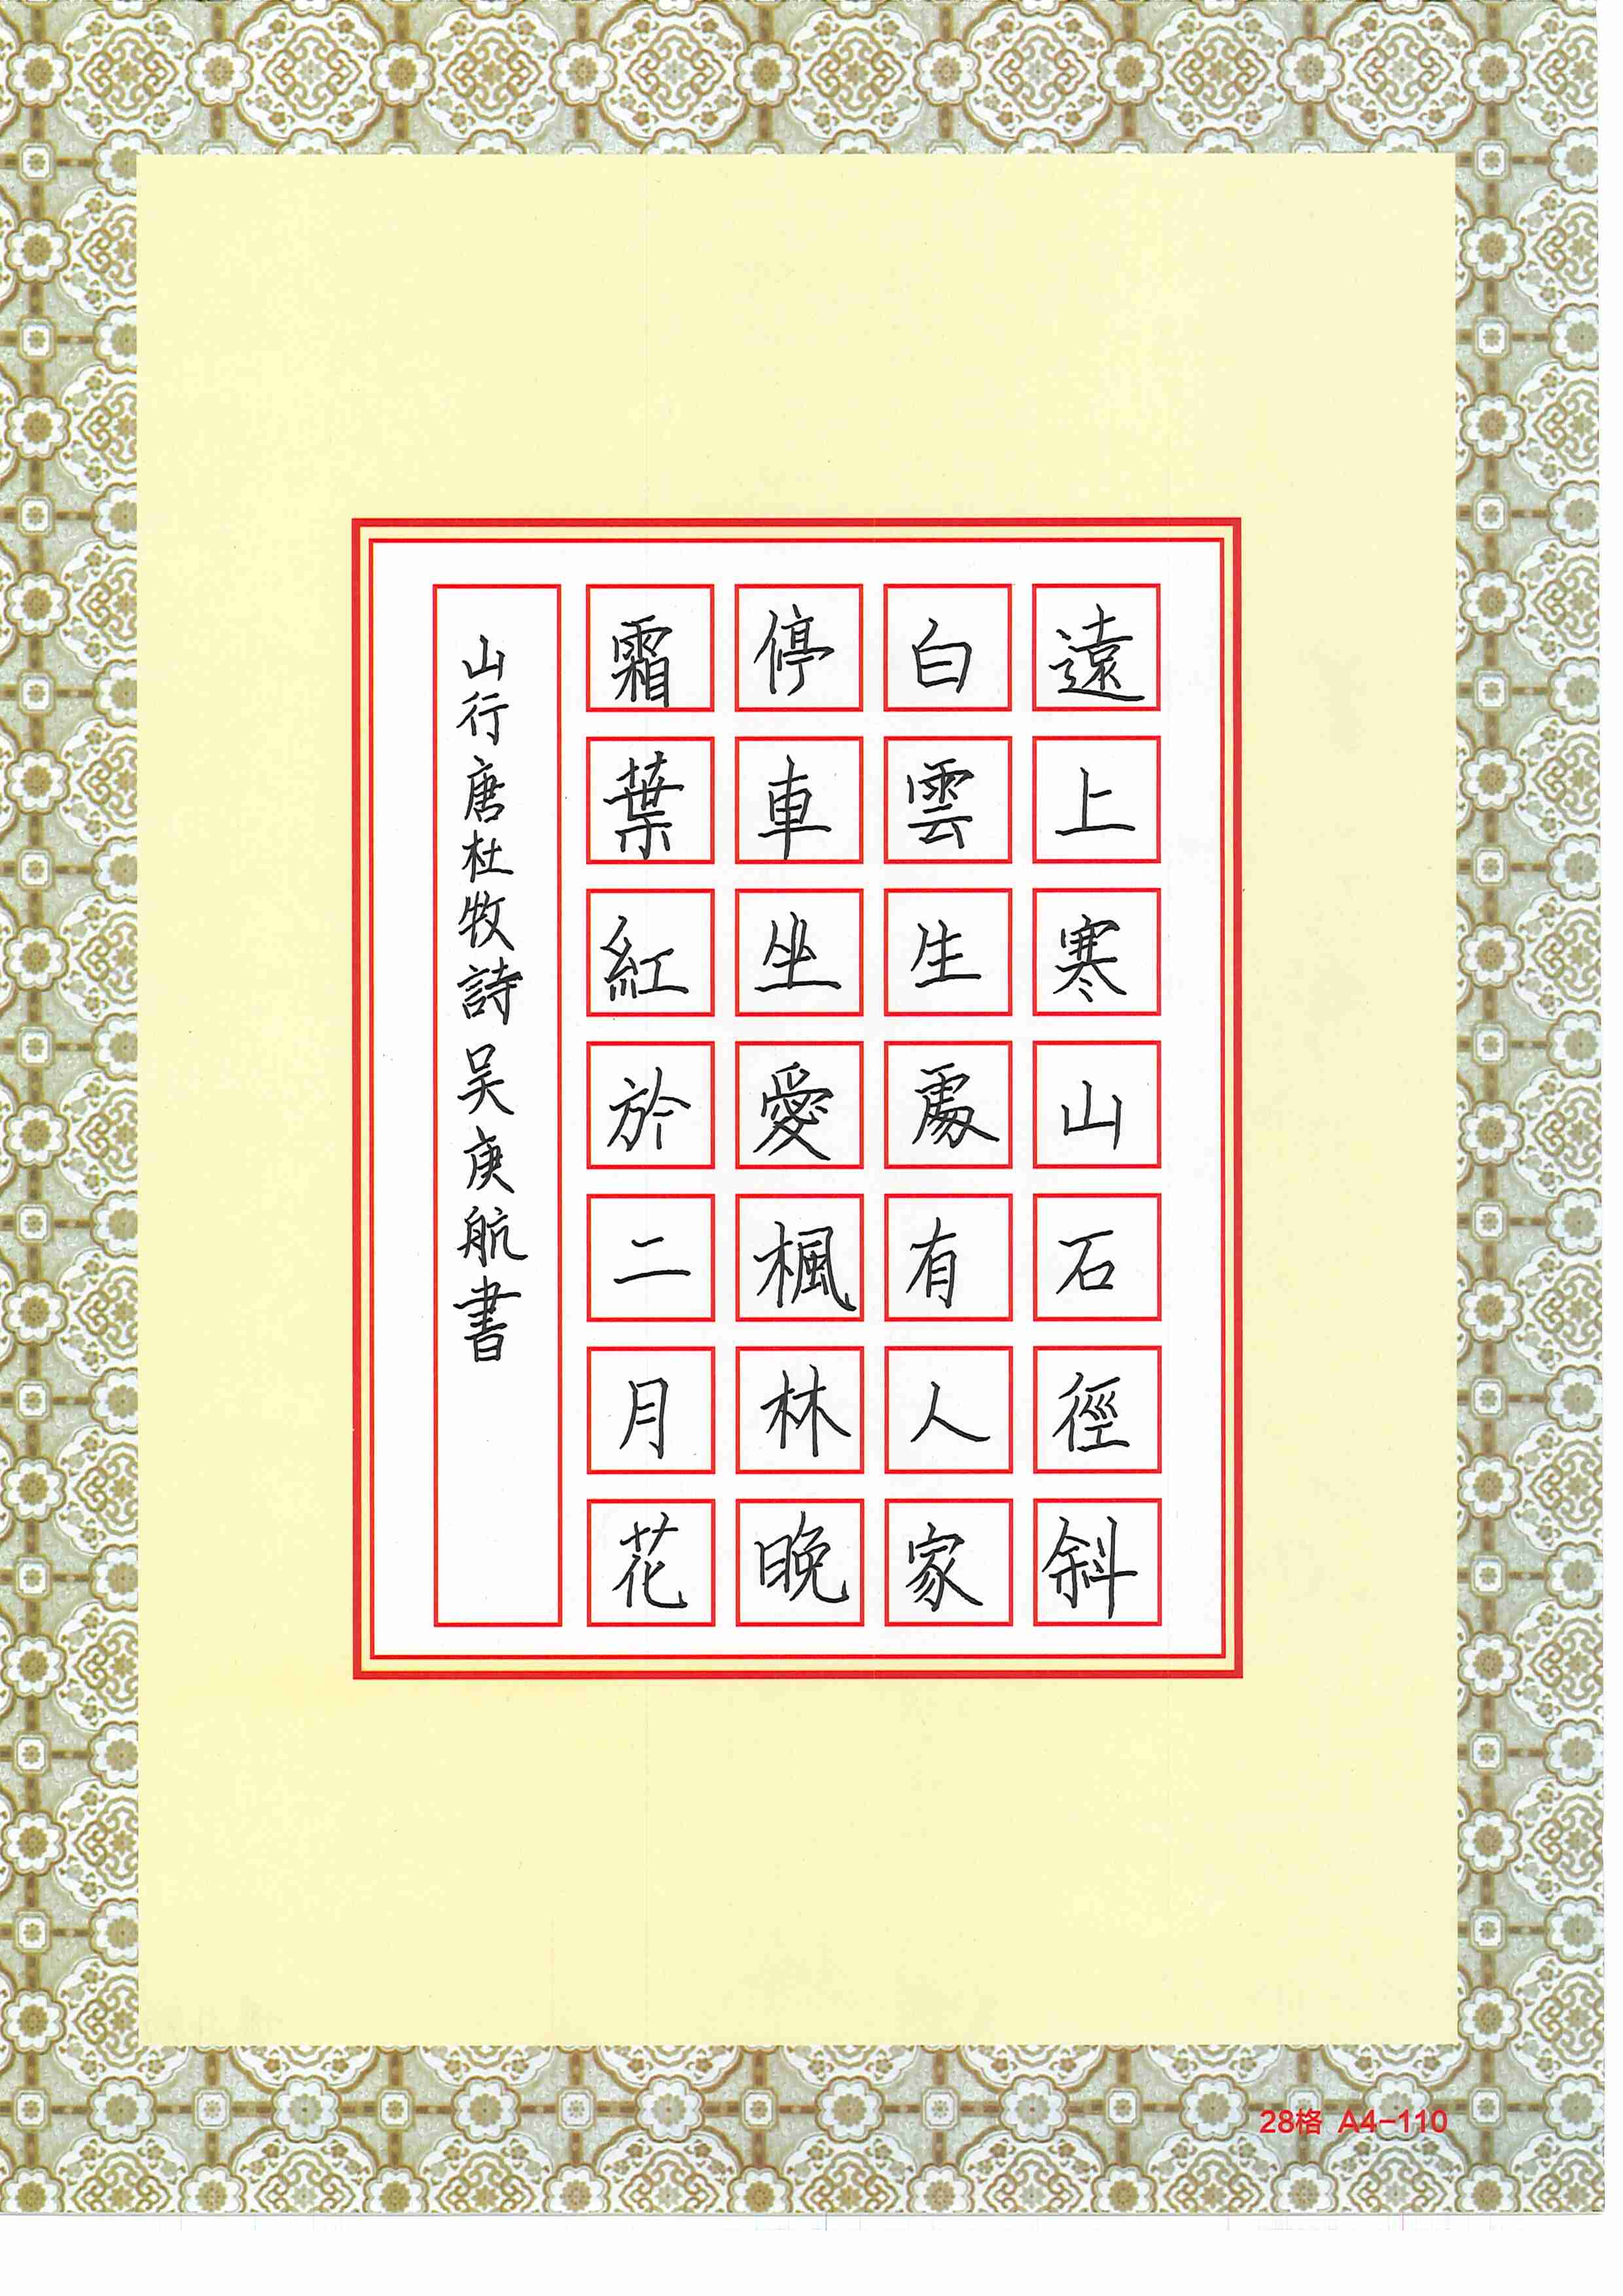 遠上寒山石徑斜
白雲生處有人家
停車坐愛楓林晚
霜葉紅於二月花
山行唐杜牧詩吴庚航書
28格 A4-110